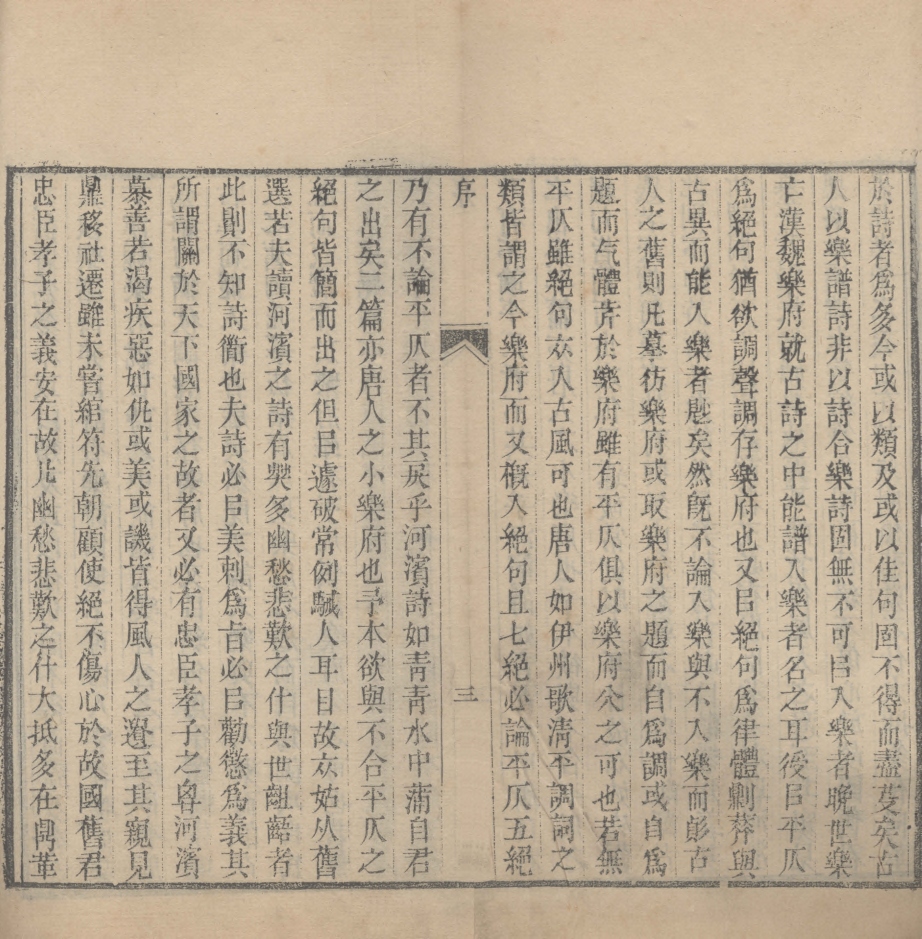 於詩者爲多今或以類及或以佳句固不得而盡芟矣古
人以樂譜詩非以詩合樂詩固無不可㠯入樂者晚世樂
亡漢魏樂府就古詩之中能譜入樂者名之耳後㠯平仄
爲絕句猶欲調聲調存樂府也又㠯絕句爲律體剿莽與
古異而能入樂者尟矣然旣不論入樂與不入樂而彭古
人之舊則凡摹彷樂府或取樂府之題而自爲調或自爲
題而气體芹於樂府雖有平仄俱以樂府公之可也若無
平仄雖絕句亦入古風可也唐人如伊州歌淸平調詞之
類皆謂之今樂府而又槪入絕句且七絕必論平仄五絕
序
三
乃有不論平仄者不其戾乎河濱詩如靑靑水中蒲自君
之出矣二篇亦唐人之小樂府也予本欲與不合平仄之
絕句皆簡而出之但㠯遽破常例駴人耳目故亦姑从舊
選若夫讀河濱之詩有哭多幽愁悲歎之什與世齟齬者
此則不知詩者也夫詩必㠯美刺爲旨必㠯勸懲爲義其
所謂關於天下國家之故者又必有忠臣孝子之㫖河濱
慕善若渴疾惡如仇或美或譏皆得風人之遺至其親見
鼎移社遷雖未嘗綰符先朝顧使絕不傷心於故國舊君
忠臣孝子之義安在故凡幽愁悲歎之什大抵多在鼎革